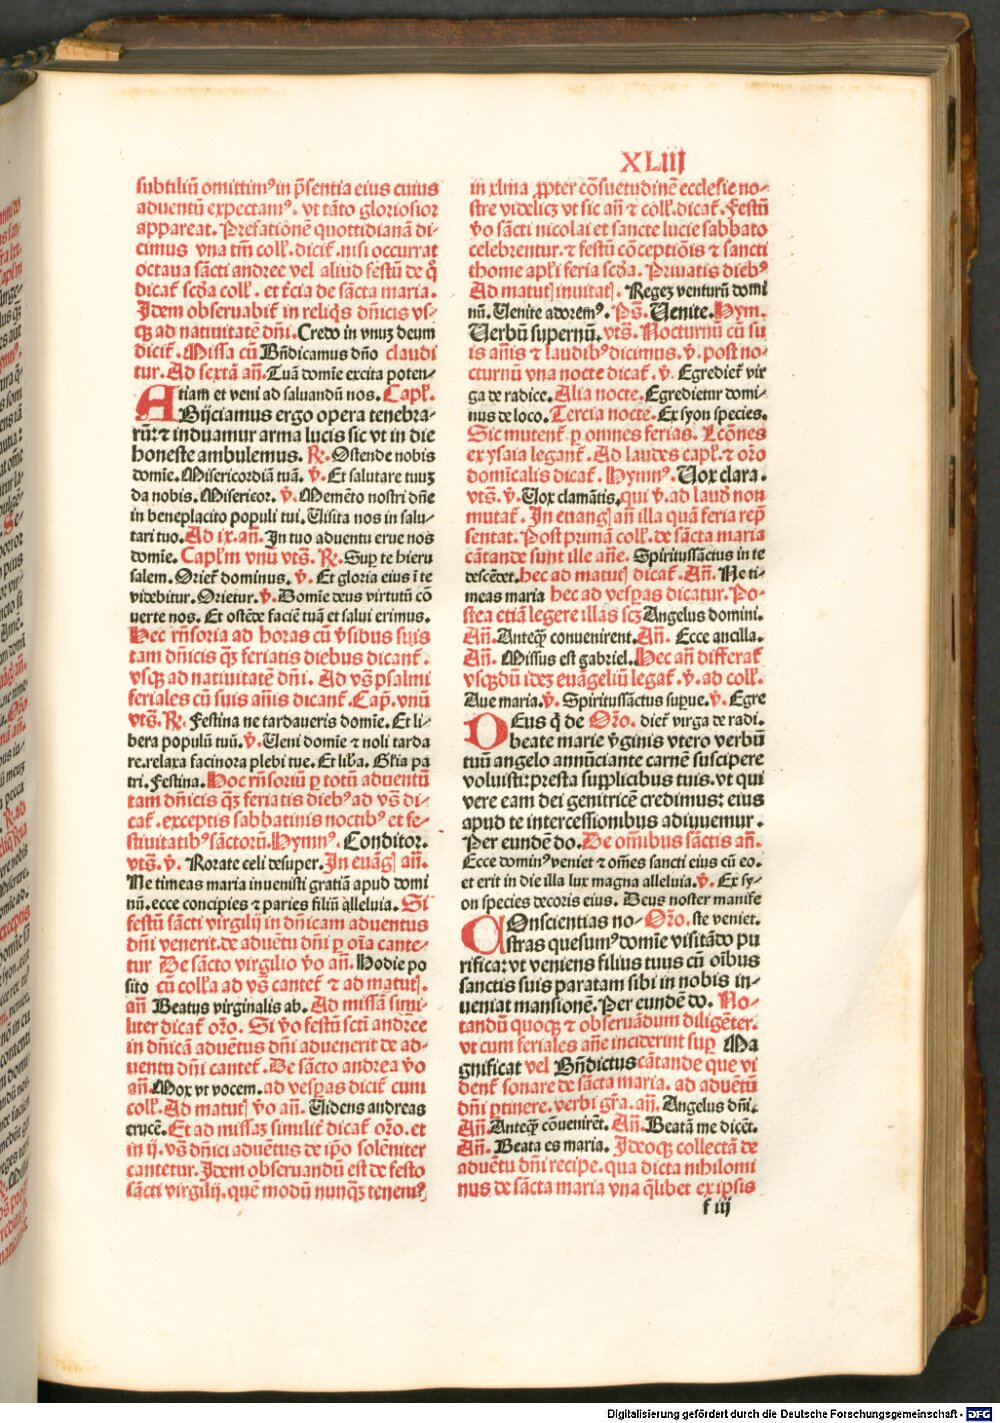 XLIII
subtiliũ omittimꝰ in p̃sentia eius cuius
aduentũ expectamꝰ. vt tãto gloriosior
appareat. Prefationẽ quottidianã di⸗
cimus vna tm̃ coll̃. dicit̃. nisi occurrat
octaua sãcti andree vel aliud festũ de q̊
dicat̃ scd̃a coll̃. et t̃cia de sãcta maria.
Idem obseruabit̃ in reliq̃s dñicis vs⸗
qꝫ ad natiuitatẽ dñi. Credo in vnuꝫ deum
dicit̃. Missa cũ Bñdicamus dño claudi
tur. Ad sextã añ. Tuã domĩe excita poten⸗
tiam et veni ad saluandũ nos. Capl̃.
ABijciamus ergo opera tenebra⸗
rũ: ⁊ induamur arma lucis sic vt in die
honeste ambulemus. R̃. Ostende nobis
domĩe. Misericordiã tuã. ṽ. Et salutare tuuꝫ
da nobis. Misericor. ṽ. Memẽto nostri dñe
in beneplacito populi tui. Uisita nos in salu⸗
tari tuo. Ad ix. añ. In tuo aduentu erue nos
domĩe. Capl̃m vnũ vts̃. R̃. Sup te hieru
salem. Oriet̃ dominus. ṽ. Et gloria eius ĩ te
videbitur. Orietur. ṽ. Domĩe deus virtutũ cõ
uerte nos. Et ostẽde faciẽ tuã et salui erimus.
Hec rñsoria ad horas cũ ṽsibus suis
tam dñicis qꝫ feriatis diebus dicant̃.
vsqꝫ ad natiuitatẽ dñi. Ad vs̃ psalmi
feriales cũ suis añis dicant̃. Cap̃. vnũ
vts̃. R̃. Festina ne tardaueris domĩe. Et li⸗
bera populũ tuũ. ṽ. Ueni domĩe ⁊ noli tarda
re. relaxa facinora plebi tue. Et lib̃a. Gl̃ia pa
tri. Festina. Hoc rñsoriũ p totũ aduentũ
tam dñicis qꝫ feriatis diebꝰ ad vs̃ di⸗
cat̃. exceptis sabbatinis noctibꝰ et fe⸗
stiuitatibꝰ sãctorũ. Hymnꝰ. Conditor.
vts̃. ṽ. Rorate celi desuper. In euãg̃ añ.
Ne timeas maria inuenisti gratiã apud domi
nũ. ecce concipies ⁊ paries filiũ alleluia. Si
festũ sãcti virgilij in dñicam aduentus
dñi venerit. de aduẽtu dñi p oĩa cante⸗
tur De sãcto virgilio ṽo añ. Hodie po
sito cũ coll̃a ad vs̃ cantet̃ ⁊ ad matut̃.
añ Beatus virginalis ab. Ad missã simi⸗
liter dicat̃ or̃o. Si ṽo festũ sct̃i andree
in dñicã aduẽtus dñi aduenerit de ad⸗
uentu dñi cantet̃. De sãcto andrea ṽo
añ. Mox vt vocem. ad vesp̃as dicit̃ cum
coll̃. Ad matut̃ ṽo añ. Uidens andreas
crucẽ. Et ad missaꝫ similit̃ dicat̃ or̃o. et
in ij. vs̃ dñici aduẽtus de ip̃o solẽniter
cantetur. Idem obseruandũ est de festo
sãcti virgilij. quẽ modũ nunqꝫ tenemꝰ
in xlma p̱pter cõsuetudinẽ ecclesie no⸗
stre videlicꝫ vt sic añ ⁊ coll̃. dicat̃. Festũ
ṽo sãcti nicolai et sancte lucie sabbato
celebrentur. ⁊ festũ cõceptiõis ⁊ sancti
thome apl̃i feria scd̃a. Priuatis diebꝰ
Ad matut̃ inuitat̃. Regeꝫ venturũ domi
nũ. Uenite adoremꝰ. Ps̃. Uenite. Hym.
Uerbũ supernũ. vts̃. Nocturnũ cũ su
is añis ⁊ laudibꝰ dicimus. ṽ. post no⸗
cturnũ vna nocte dicat̃. ṽ. Egrediet̃ vir
ga de radice. Alia nocte. Egredietur domi⸗
nus de loco. Tercia nocte. Ex syon species.
Sic mutent̃ p omnes ferias. Lc̃õnes
ex ysaia legant̃. Ad laudes capl̃. ⁊ or̃o
domĩcalis dicat̃. Hymnꝰ. Uox clara.
vts̃. ṽ. Uox clamãtis. qui ṽ. ad laud̃ non
mutat̃. In euang̃ añ illa quã feria rep̃
sentat. Post primã coll̃. de sãcta maria
cãtande sunt ille añe. Spiritussãctus in te
descẽdet. hec ad matut̃ dicat̃. Añ. Ne ti⸗
meas maria hec ad vesp̃as dicatur. Po⸗
stea etiã legere illas scꝫ Angelus domini.
Añ. Anteqꝫ conuenirent. Añ. Ecce ancilla.
Añ. Missus est gabriel. Hec añ differat̃
vsqꝫ dũ ideꝫ euãgeliũ legat̃. ṽ. ad coll̃.
Aue maria. ṽ. Spiritussãctus supue. ṽ. Egre
DEus q̃ de Or̃o. diet̃ virga de radi.
beate marie ṽginis vtero verbũ
tuũ angelo annũciante carnẽ suscipere
voluisti: presta supplicibus tuis. vt qui
vere eam dei genitricẽ credimus: eius
apud te intercessionibus adiuuemur.
Per eundẽ do. De om̃ibus sãctis añ.
Ecce dominꝰ veniet ⁊ om̃es sancti eius cũ eo.
et erit in die illa lux magna alleluia. ṽ. Ex sy⸗
on species decoris eius. Deus noster manife
COnscientias no⸗ Or̃o. ste veniet.
stras quesumꝰ domĩe visitãdo pu
rifica: vt veniens filius tuus cũ oĩbus
sanctis suis paratam sibi in nobis in⸗
ueniat mansionẽ. Per eundẽ do. No⸗
tandũ quoqꝫ ⁊ obseruãdum diligẽter.
vt cum feriales añe inciderint sup Ma
gnificat vel Bñdictus cãtande que vi
dent̃ sonare de sãcta maria. ad aduẽtũ
dñi p̱tinere. verbi gr̃a. añ. Angelus dñi.
Añ. Anteqꝫ cõuenirẽt. Añ. Beatã me dicẽt.
Añ. Beata es maria. Ideoqꝫ collectã de
aduẽtu dñi recipe. qua dicta nihilomi
nus de sãcta maria vna q̃libet ex ipsis
f iij
Digitalisierung gefördert durch die Deutsche Forschungsgemeinschaft - DFG